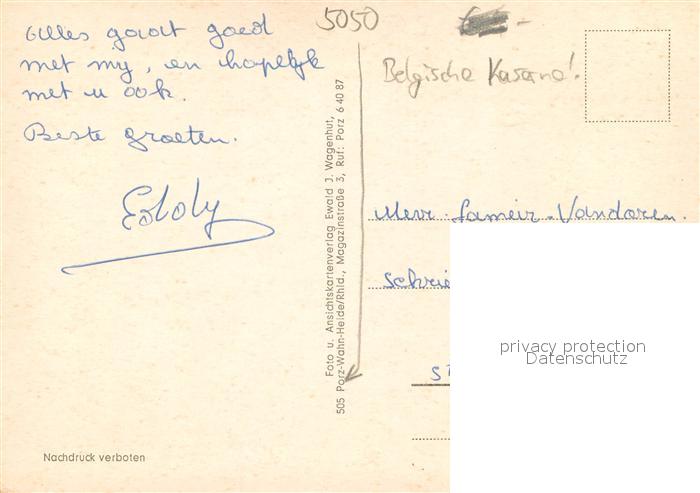 alles gaat goed
met my, en hopelyk
met u ook.
Beste groeten.
Eddy
Nachdruck verboten
Foto u. Ansichtskartenverlag Ewald J. Wagenhut,
505 Porz-Wahn-Heide/Rhld., Magazinstraße 3, Ruf: Porz 6 40 87
5050
Belgische Kaserne!
Mevr. Lameir-Vandoren.
Schrie
privacy protection
Datenschutz